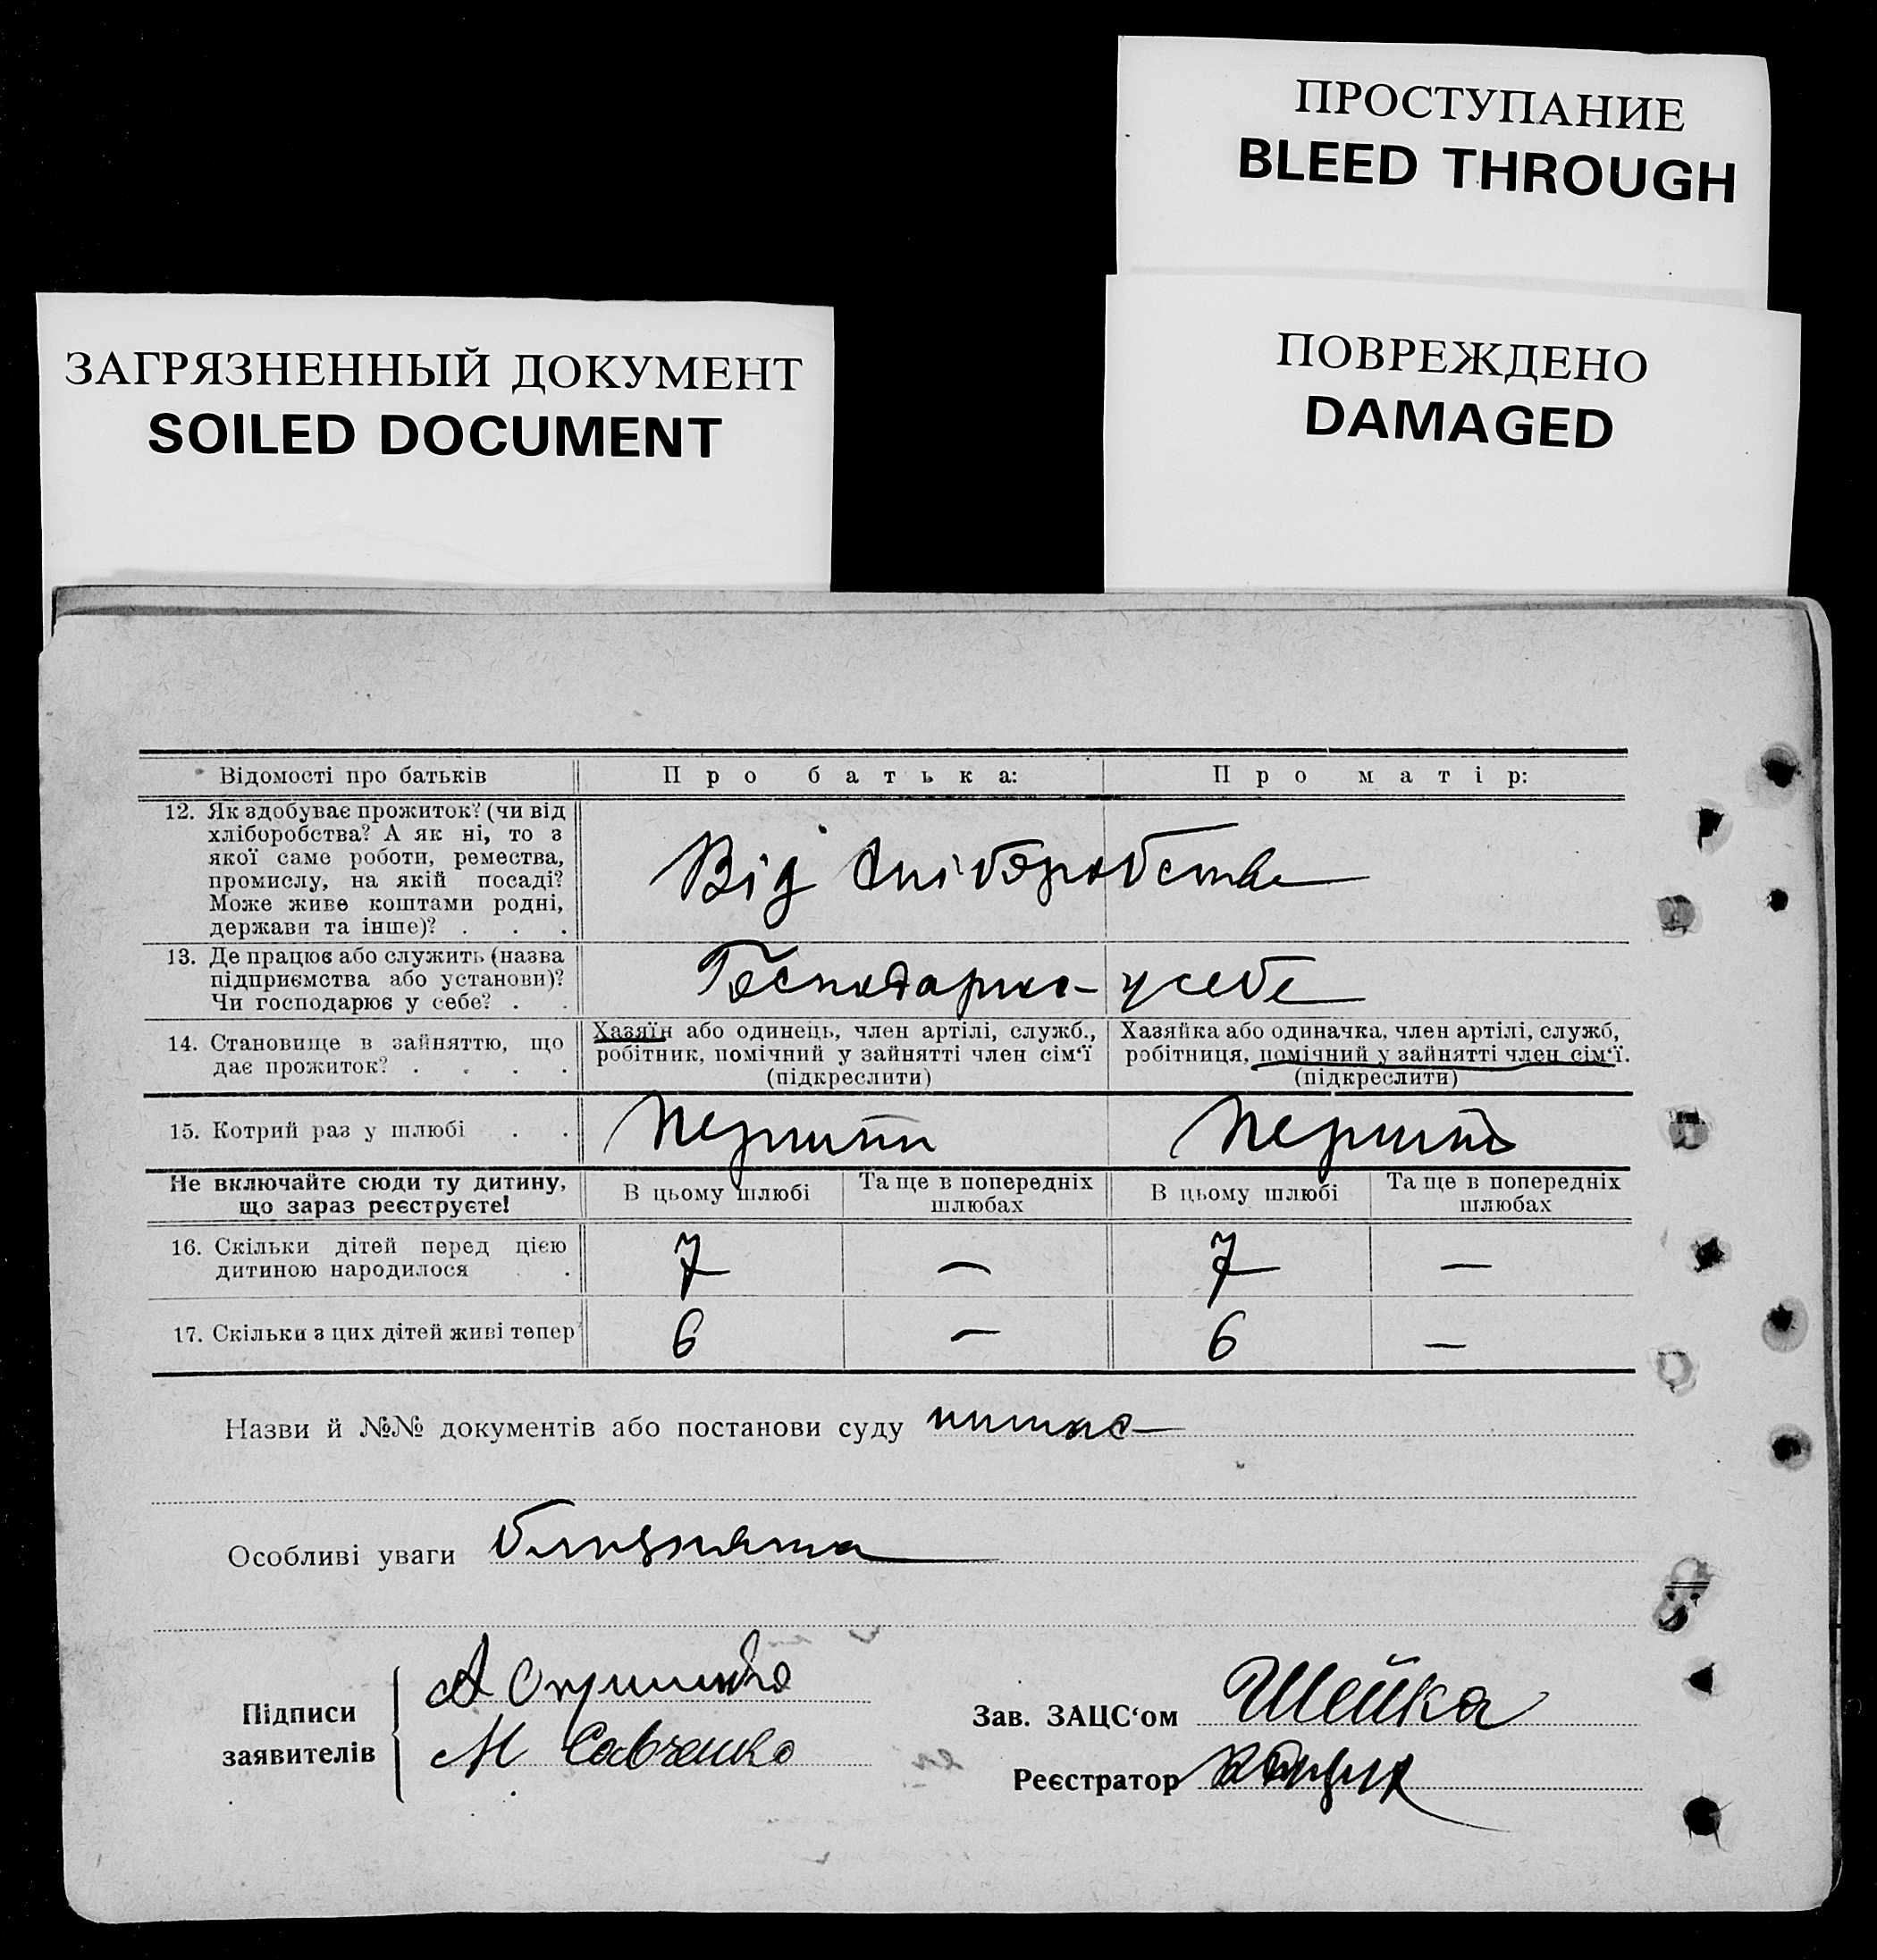 ПРОСТУПАНИЕ
BLEED THROUGH
ПОВРЕЖДЕНО
DAMAGED
ЗАГРЯЗНЕННЫЙ ДОКУМЕНТ
SOILED DOCUMENT
Відомості про батьків Про батька: Про матір:
12. Як здобуває прожиток? (чи від
хліборобства? А як ні, то з
якої саме роботи, ремества,
промислу, на якій посаді?
Може живе коштами родні,
держави та інше)? . . .
Від хліборобства
13. Де працює або служить (назва
підприємства або установи)?
Чи господарює у себе? . .
Господарює у себе
14. Становище в зайняттю, що
дає прожиток? . . . .
Хазяїн або одинець, член артілі, служб.,
робітник, помічний у зайнятті член сім'ї
(підкреслити)
Хазяйка або одиначка, член артілі, служб,
робітниця, помічний у зайнятті член сім'ї.
(підкреслити)
15. Котрий раз у шлюбі . . Перший Перший
Не включайте сюди ту дитину,
що зараз реєструєте!
В цьому шлюбі Та ще в попередніх
шлюбах
В цьому шлюбі Та ще в попередніх
шлюбах
16. Скільки дітей перед цією
дитиною народилося .
7 — 7 —
17. Скільки з цих дітей живі тепер 6 — 6 —
Назви й №№ документів або постанови суду
Особливі уваги близнята
Підписи
заявителів
А
М Савченко
Зав. ЗАЦС'ом Шейка
Реєстратор